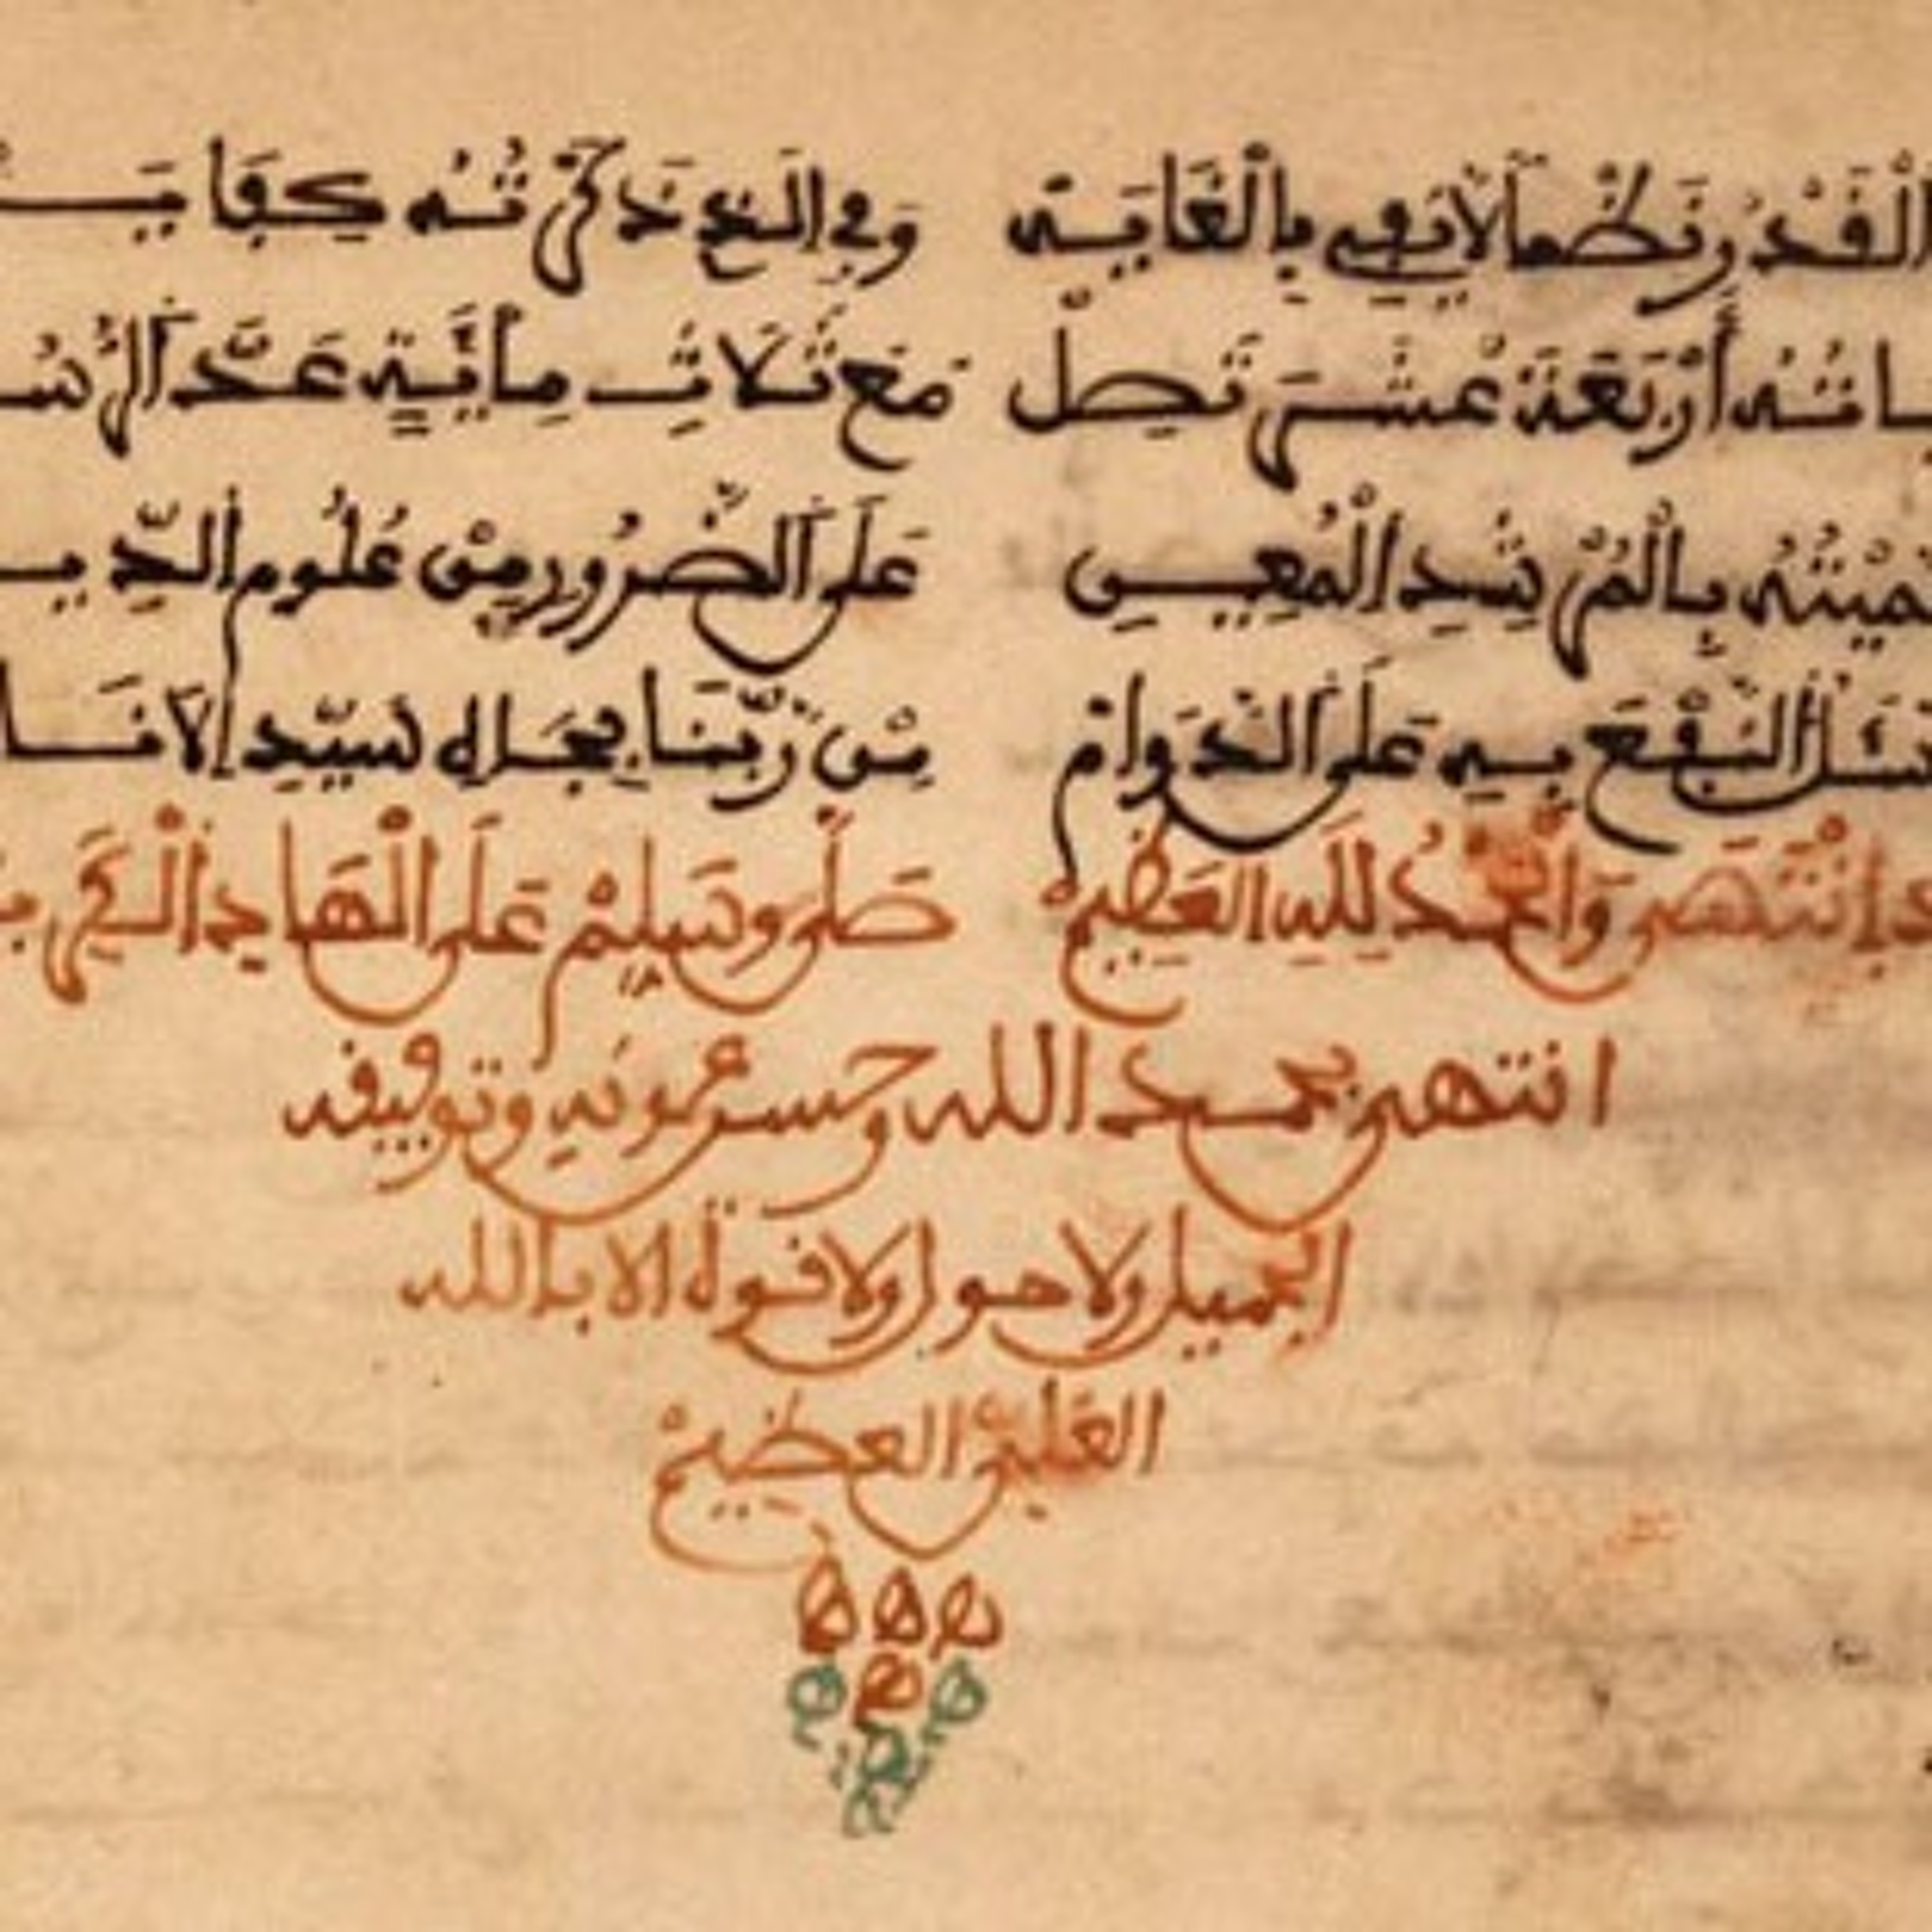 الْقَدْرِ نَظْمًا لَا يَفِي بِالْغَايَه وَفِي الَّذِي ذَكَرْتُهُ كِفَايَه
أَرْبَعَةَ عَشَرَ تَصِلْ مَعَ ثَلَاثِ مِائَةٍ عَدَّ الرُّسُ
بِالْمُرْشِدِ الْمُعِينِ عَلَى الضَّرُورِي مِنْ عُلُومِ الدِّيـ
النَّفْعَ بِهِ عَلَى الدَّوَامْ مِنْ رَبِّنَا بِجَاهِ سَيِّدِ الْأَنَا
انْتَهَى وَالْحَمْدُ لِلَّهِ الْعَظِيمْ صَلَّى وَسَلِّمْ عَلَى الْهَادِي الْكَرِيـ
انتهى بحمد الله وحسن عونه وتوفيقه
الجميل ولا حول ولا قوة الا بالله
العلي العظيم